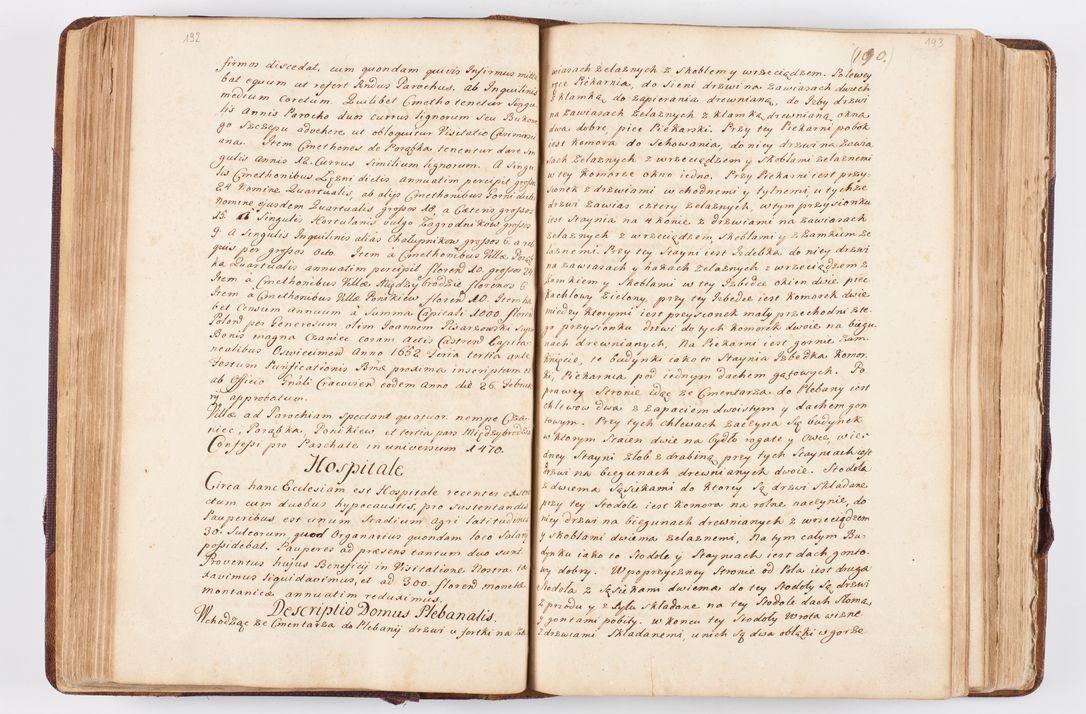 192
firmos discedat, cum quondam quivis Infirmus mitte
bat equum ut refert Rndus Parochus. ab Inquilinis
medium Coretum. Quilibet Cmetho tenetur Singu
lis Annis Parocho duos currus lignorum Seu Bukowe
go Szczepu advehere ut obloquitur Visitatio
ana. Item Cmethones de Porąbka tenentur dare Sin
gulis Annis 12. Currus Similium lignorum. A Singu
lis Cmethonibus Łęzni dictis annuatim percipit grossos
24 Nomine Quartualis, ab alijs Cmethonibus Porni dictis
nomine ejusdem Quartualis grossos 18, a Cateris grossos
15. A Singulis Hortulanis vulgo Zagrodnikow grossos
9. a Singulis Inquilinis alias Chałupnikow grossos 6. a reli
quis per grossos Octo. Item a Cmethonibus Villæ Porąb
ka Quartualis annuatim percipit floren 10. grossos 24
Item a Cmethonibus Villæ Międzybrodzie florenos 6
Item a Cmethonibus Villæ Ponikiew floren 10. Item ha
bet Censum annuum à Summa Capitali 1000. floren
Polon per Generosum olim Joannem Pisarzowski Super
Bonis magna Czaniec coram Actis Castren Capita
neatibus Oswiecimen Anno 1652 Feria tertia ante
Festum Purificationis Bmæ proxima inscriptum et
ab Officio Gnali Cracovien eodem Anno die 26. Februa
rij approbatum.
Villæ ad Parochiam spectant quatuor. nempe Cza
niec, Porąbka, Ponikiew et tertia pars Międzybrodzia
Confessi pro Paschale in universum 1470.
Hospitale
Circa hanc Ecclesiam est Hospitale recenter exstru
ctum cum duobus hypocaustis, pro sustentandis
Pauperibus est unum Stadium agri latitudinis
30. Sulcorum, quod Organarius quondam loco Salarij
possidebat. Pauperes ad præsens tantum duo sunt
Proventus hujus Beneficij in Visitatione Nostra ta
xavimus liquidavimus, et ad 300. floren moneta
montanicæ annuatim reduximus.
Descriptio Domus Plebanalis.
Wchodząc ze Cmentarza do Plebanij drzwi u fortki na za
193
190.
wiasach żelaznych z Skoblem y wrzeciądzem. Po lewey
ręce Piekarnia, do Sieni drzwi na zawiasach dwuch
z klamką, do zapierania drewnianą, do Izby drzwi
na zawiasach żelaznych z klamką drewnianą okna
dwa dobre piec Piekarski. Przy tey Piekarni pobok
iest komora do Schowania, do niey drzwi na zawia
sach żelaznych z wrzeciądzem y Skoblami żelaznemi
w tey komorze okno iedno. Przy Piekarni iest przy-
sionek z drzwiami wchodnemi y tylnemi, u tychże
drzwi zawias cztery żelaznych, w tym przysionku
iest Staynia na 4 konie z drzwiami na zawiasach
żelaznych z wrzeciądzem Skoblami y zamkiem że
laznemi. Przy tey Stayni iest Izdebka do niey drzwi
na zawiasach y hakach żelaznych z wrzeciądzem z
zamkiem y Skoblami w tey Izdebce okien dwie piec
kachlowy zielony, przy tey Izbedce iest komorek dwie
między ktorymi iest preysionek mały przechodni z te-
go przysionku drzwi do tych komorek dwoie na biegu
nach drewnianych, Na Piekarni iest gornie zam-
knięcie, te budynki iako to Staynia Izbedka komor
ki, Piekarnia pod iednym dachem gątowych. Po
prawey Stronie idąc ze Cmentarza do Plebanij iest
chlewow dwa z zapaciem dwoistym y dachem gon
towym. Przy tych chlewach zaczyna Się budynek
w ktorym Staien dwie na bydło rogate y Owce, w ie-
dney Stayni żłob z drabiną przy tych Stayniach iest
drzwi na biegunach drewnianych dwoie. Stodoła
z dwiema Sąsiekami do ktorey Są drzwi Składane
przy tey Stodole iest komora na rolne naczynie, do
niey drzwi na biegunach drewnianych z wrzeciądzem
y Skoblami dwiema żelaznemi, Na tym całym Bu-
dynku iako to Stodole y Stayniach iest dach gonto-
wy dobry. W poprzyczney Stronie od Pola iest druga
Stodoła z Sąsiekami dwiema do tey Stodoły Są drzwi
z przodu y z tyłu Składane na tey Stodole dach Słomą
y gontami pobity. w końcu tey Stodoły Wrota wizne
z drzwiami Składanemi, u nich Są dwa obłąki w gorze